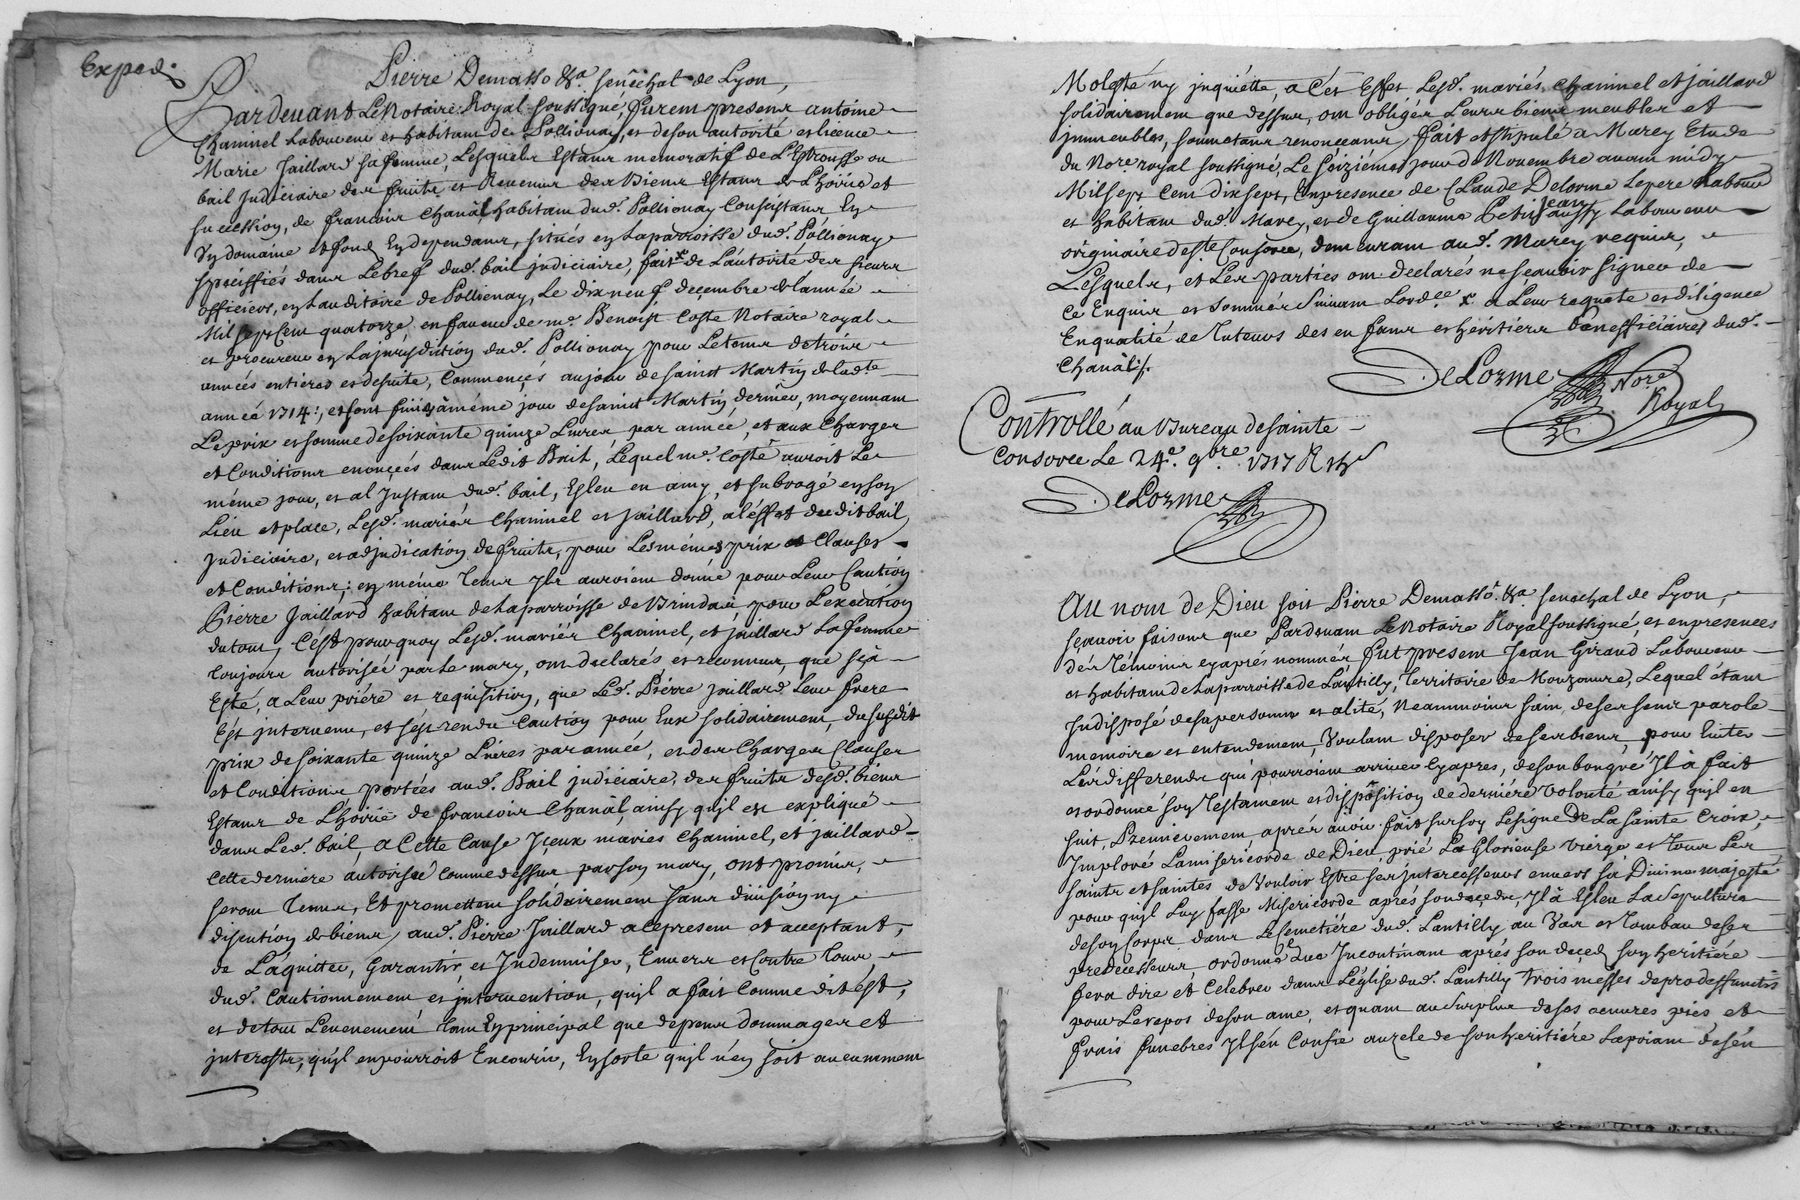 Exped.
Pierre Demasso &a. senechal de Lyon,
Pardevant Le Notaire Royal soussigné, furent presens antoine
Chaminel Laboureur et habitant de Pollionay, et deson autorité et licence
Marie Jaillard sa femme, Lesquels Estans memoratif de L'Estrousse ou
bail Judiciaire des fruits et Revenus des Biens Estans de L'hoirie et
succession, de francois Chanâl, habitant dud. Pollionay Consistans, En
Un domaine et fond En dependans, situés en Laparroisse dud. Pollionay
speciffiés dans Lebref dud. bail judiciaire, fait de L'autorité des sieurs
officiers, en Lauditoire de Pollionay, Le dix neuf decembre de L'année
Mil sept Cent quatorze, en faveur de me. Benoist Coste Notaire royal
et procureur en Lajurisdiction dud. Pollionay pour Letems detrois
années entieres et desuite, Commencés aujour de saint Martin de Ladte
année 1714: et sont finis âméme jour de saint Martin dernier, moyennant
Leprix et somme desoixante quinze Livres par année, et aux Charges
et Conditions enoncées dans Ledit Bail, Lequel me. Coste auroit Le
méme jour, et al Instant dud. bail, Esleu en amy, et subrogé ensson
Lieu et place, Lesd. mariés Chaminel et Jaillard, a l'éffet dudit bail
Judiciaire, et adjudication de fruits, pour Lesmémes prix et Clauses
et Conditions; en méme tems Ils auroient donné pour Leur Caution
Pierre Jaillard habitant de Laparroisse de Brindas, pour L'execution
dutout, C'est pourquoy Lesd. mariés Chaminel, et jaillard sa femme
toujours autorisée par Le mary, ont declarés et reconnus, que s'ja
Esté, a Leur priere et requisition, que Led. Pierre jaillard Leur frere
Est intervenu, et s'est rendu Caution pour Eux solidairement, du susdit
prix de soixante quinze Livres par année, et des Charges Clauses
et Conditions portées aud. Bail judiciaire, des fruits desd. biens
Estans de L'hoirie de francois Chanâl, ainsy quil est expliqué
dans Led. bail, a Cette Cause Iceux mariés Chaminel, et jaillard
Cette derniere autorisée Comme dessus par son mary, ont promis,
seront tenus, Et promettent solidairement sans division ny
discution de biens, aud. Pierre Jaillard acepresent et acceptant,
de L'aquitter, Garantir et Indemniser, Envers et Contre tous,
dud. Cautionnement et intervention, quil a fait Comme dit est,
et de tout L'evenement tant En principal que depens dommages et
interests, quil en pourroit Encourir, En sorte quil n'en soit aucunement
Molesté ny inquiétté, a Cét Effet Lesd. mariés Chaminel et jaillard
solidairement que dessus, ont obligés Leurs biens meubles et
immeubles, soumettans renonceans, fait et stipulé a Marcy Etude
du Nore. royal soussigné, Le seiziéme jour de Novembre avant midy
Mil sept Cent dix sept, En presence de Claude Delorme Le pere Laboureur
et habitant dud. Marcy, et de Guillaume Petit Jean aussy Laboureur
originaire de ste. Consorce, demeurant aud. Marcy requis,
Lesquels, et Les parties ont declarés ne sçavoir signer de
Ce Enquis et sommés suivant Lordce. a Leur requete et diligence
En qualité de tuteurs des enfans et héritiers Benefficiaires dud.
Chanâl ./.
DeLorme Nore
Royal
Controllé au Bureau de sainte
Consorce Le 24e. 9bre. 1717 R
DeLorme
Au nom de Dieu soit Pierre Demasso. &a. senechal de Lyon,
sçavoir faisons que Pardevant Le Notaire Royal soussigné, et en presences
dés témoins cy aprés nommés fut present Jean Giraud Laboureur
et habitant de Laparroisse de Lantilly, territoire de Mouzouvre, Lequel étant
Indisposé desapersonne et alité, Neanmoins sain de ses sens parole
memoire et entendement, Voulant disposer de ses biens, pour Eviter
Lés differends qui pourroient arriver Cy apres, de son bongré Il à fait
et ordonné son testament et disposition de derniére Volonté ainsy quil en
suit, Premierement aprés avoir fait sur soy Lésigne de La sainte Croix,
Imploré Lamisericorde de Dieu, prié La Glorieuse Vierge et tous Les
saints et saintes de Vouloir Estre ses intercesseurs envers sa Divine majesté
pour quil Luy fasse Misericorde aprés son decedz, Il à Esleu La sepulture
de son Corps dans Lesemetiére dud. Lantilly au Vas et tombau deses
predecesseurs, ordonne que Incontinant aprés son deced son heritiére
fera dire et Celebrer dans L'église dud. Lantilly trois messes deprodeffunctis
pour Le repos de son ame, et quant au surplus de ses oeuvres pies et
frais funebres Il s'én Confie auzele de son heritiére Lapriant d'én